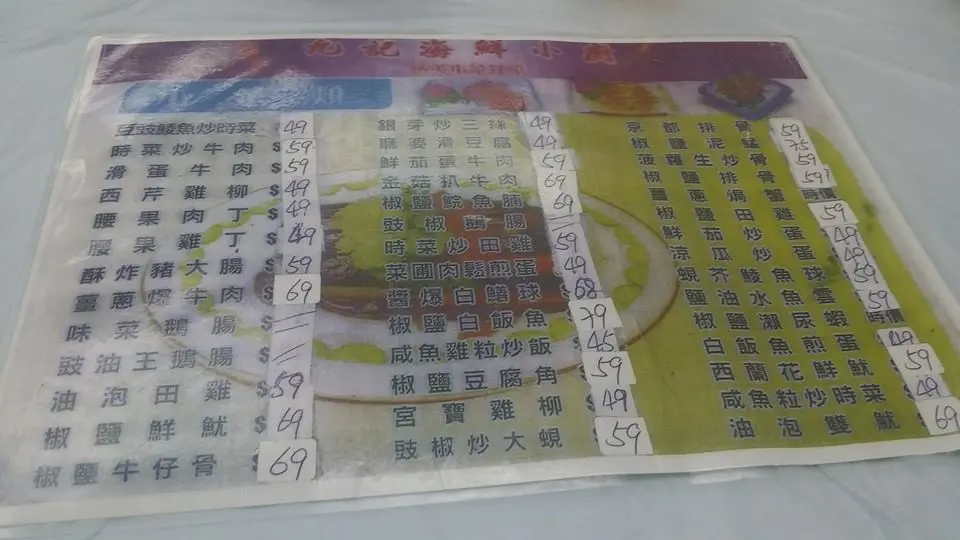 九記海鮮小廚
豆豉鯪魚炒時菜 49
時菜炒牛肉 $59
滑蛋牛肉 $59
西芹雞柳 $49
腰果肉丁 $49
腰果雞丁 $49
酥炸豬大腸 $59
薑蔥爆牛肉 69
味菜鵝腸 $
豉油王鵝腸 $
油泡田雞 $59
椒鹽鮮魷 $69
椒鹽牛仔骨 69
銀芽炒三絲 49
麻婆滑豆腐 49
鮮茄蛋牛肉 59
金菇扒牛肉 69
椒鹽鯇魚腩 69
豉椒鵝腸
時菜炒田雞 59
菜圃肉鬆煎蛋 49
醬爆白鱔球 68
椒鹽白飯魚 79
咸魚雞粒炒飯 45
椒鹽豆腐角 59
宮寶雞柳 $49
豉椒炒大蜆 $59
京都排骨 59
椒鹽泥鯭 75
菠蘿生炒骨 59
椒鹽排骨 59
薑蔥焗蟹 時價
椒鹽田雞 59
鮮茄炒蛋 49
涼瓜炒蛋 49
蜆芥鯪魚球 59
鹽油水魚雲 59
椒鹽瀨尿蝦 時價
白飯魚煎蛋 49
西蘭花鮮魷 59
咸魚粒炒時菜 49
油泡雙魷 69